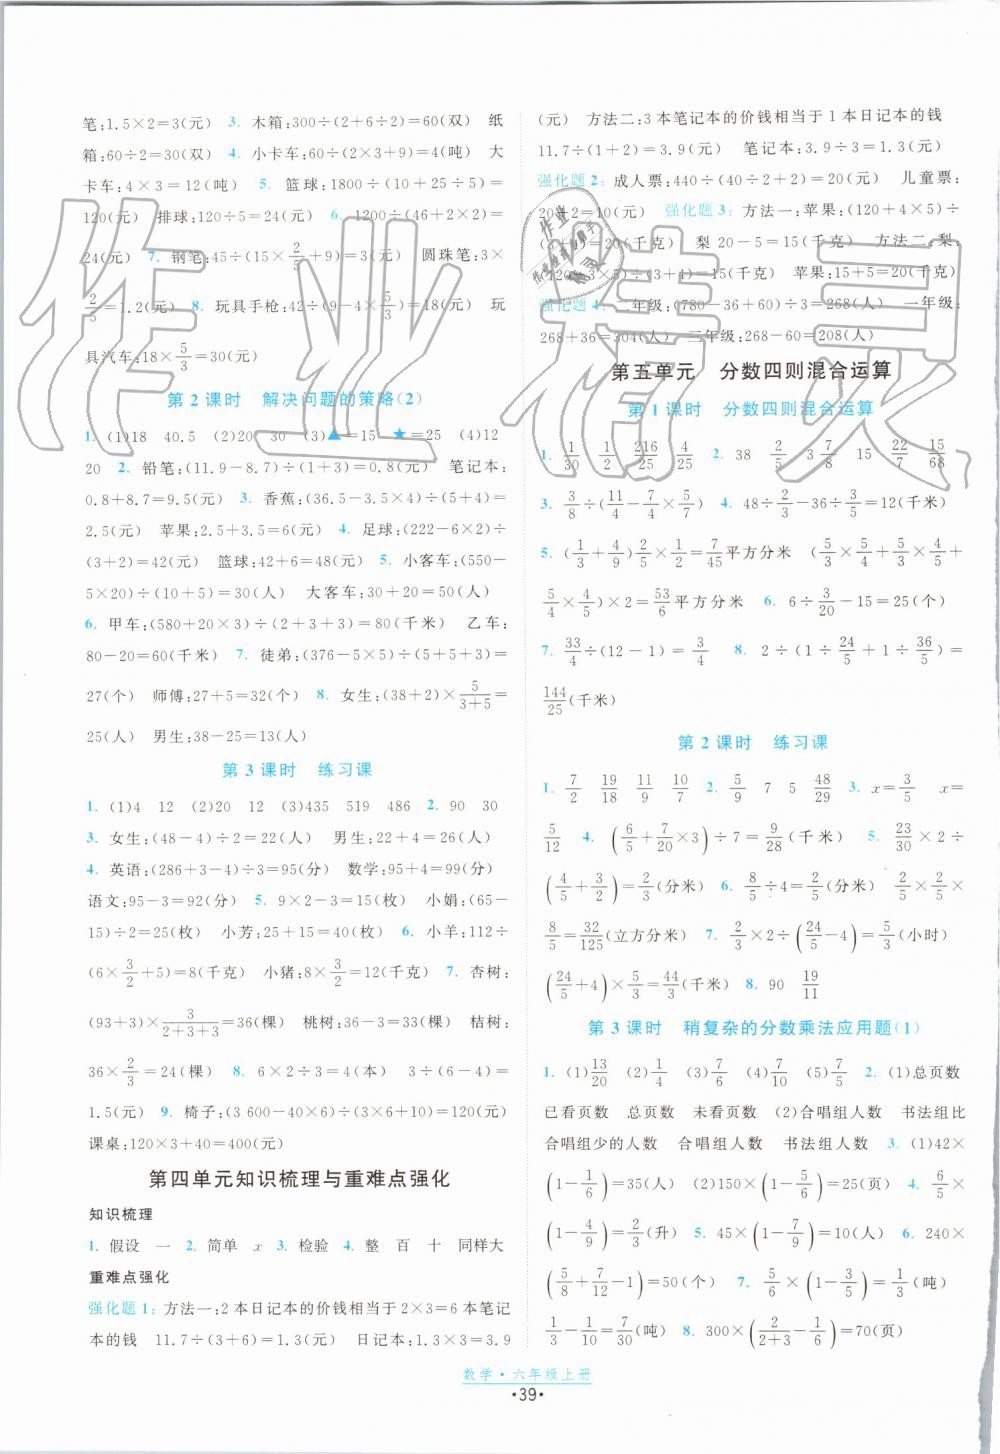 笔:1.5×2=3(元) 3. 木箱:300÷(2+6÷2)=60(双) 纸
箱:60÷2=30(双) 4. 小卡车:60÷(2×3+9)=4(吨) 大
卡车:4×3=12(吨) 5. 篮球:1800÷(10+25÷5)=
120(元) 排球:120÷5=24(元) 6. 1200÷(46+2×2)=
24(元) 7. 钢笔:45÷(15×2/5+9)=3(元) 圆珠笔:3×
2/5=1.2(元) 8. 玩具手枪:42÷(9-4×5/3)=18(元) 玩
具汽车:18×5/3=30(元)
第2课时 解决问题的策略(2)
1. (1)18 40.5 (2)20 30 (3)▲=15 ★=25 (4)12
20 2. 铅笔:(11.9-8.7)÷(3+1)=0.8(元) 笔记本:
0.8+8.7=9.5(元) 3. 香蕉:(36.5-3.5×4)÷(5+4)=
2.5(元) 苹果:2.5+3.5=6(元) 4. 足球:(222-6×2)÷
(3+2)=42(元) 篮球:42+6=48(元) 5. 小客车:(550-
5×20)÷(10+5)=30(人) 大客车:30+20=50(人)
6. 甲车:(580+20×3)÷(2+3+3)=80(千米) 乙车:
80-20=60(千米) 7. 徒弟:(376-5×5)÷(5+8)=
27(个) 师傅:27+5=32(个) 8. 女生:(38+2)×5/(3+5)=
25(人) 男生:38-25=13(人)
第3课时 练习课
1. (1)4 12 (2)20 12 (3)435 519 486 2. 90 30
3. 女生:(48-4)÷2=22(人) 男生:22+4=26(人)
4. 英语:(286+3-4)÷3=95(分) 数学:95+4=99(分)
语文:95-3=92(分) 5. 9×2-3=15(枚) 小娟:(65-
15)÷2=25(枚) 小芳:25+15=40(枚) 6. 小羊:112÷
(6×3/2+5)=8(千克) 小猪:8×3/2=12(千克) 7. 杏树:
(93+3)×3/(2+3+3)=36(棵) 桃树:36-3=33(棵) 桔树:
36×2/3=24(棵) 8. 6×2÷3=4(本) 3÷(6-4)=
1.5(元) 9. 椅子:(3 600-40×6)÷(3×6+10)=120(元)
课桌:120×3+40=400(元)
第四单元知识梳理与重难点强化
知识梳理
1. 假设 一 2. 简单 x 3. 检验 4. 整 百 十 同样大
重难点强化
强化题1: 方法一:2本日记本的价钱相当于2×3=6本笔记
本的钱 11.7÷(3+6)=1.3(元) 日记本:1.3×3=3.9
(元) 方法二:3本笔记本的价钱相当于1本日记本的钱
11.7÷(1+2)=3.9(元) 笔记本:3.9÷3=1.3(元)
强化题2: 成人票:440÷(40÷2+2)=20(元) 儿童票:
20÷2=10(元) 强化题3: 方法一:苹果:(120+4×5)÷
(3+4)=20(千克) 梨 20-5=15(千克) 方法二:梨:
(120-5×3)÷(3+4)=15(千克) 苹果:15+5=20(千克)
强化题4: 二年级:(780-36+60)÷3=268(人) 一年级:
268+36=304(人) 三年级:268-60=208(人)
第五单元 分数四则混合运算
第1课时 分数四则混合运算
1. 1/30 1/2 216/25 4/25 2. 38 2/5 3 7/8 15 22/7 15/68
3. 3/8÷(11/4-7/4×5/7) 4. 48÷2/3-36÷3/5=12(千米)
5. (1/3+4/9)2/5×1/2=7/45平方分米 (5/3×4/5+5/3×4/5+
5/4×4/5)×2=53/6平方分米 6. 6÷3/20-15=25(个)
7. 33/4÷(12-1)=3/4 8. 2÷(1÷24/5+1÷36/5)=
144/25(千米)
第2课时 练习课
1. 7/2 19/18 11/9 10/7 2. 5/9 7 5 48/29 3. x=3/5 x=
5/12 4. (6/5+7/20×3)÷7=9/28(千米) 5. 23/30×2÷
(4/5+3/2)=2/3(分米) 6. 8/5÷4=2/5(分米) 2/5×2/5×
8/5=32/125(立方分米) 7. 2/3×2÷(24/5-4)=5/3(小时)
(24/5+4)×5/3=44/3(千米) 8. 90 19/11
第3课时 稍复杂的分数乘法应用题(1)
1. (1)13/20 (2)1/4 (3)7/6 (4)7/10 (5)7/5 2. (1)总页数
已看页数 总页数 未看页数 (2)合唱组人数 书法组比
合唱组少的人数 合唱组人数 书法组人数 3. (1)42×
(1-1/6)=35(人) (2)150×(1-5/6)=25(页) 4. 6/5×
(1-4/9)=2/3(升) 5. 45×(1-7/9)=10(人) 6. 240×
(5/8+7/12-1)=50(个) 7. 5/6×(1-3/5)=1/3(吨)
1/3-1/10=7/30(吨) 8. 300×(2/(2+3)-1/6)=70(页)
数学·六年级上册
·39·
作业精灵